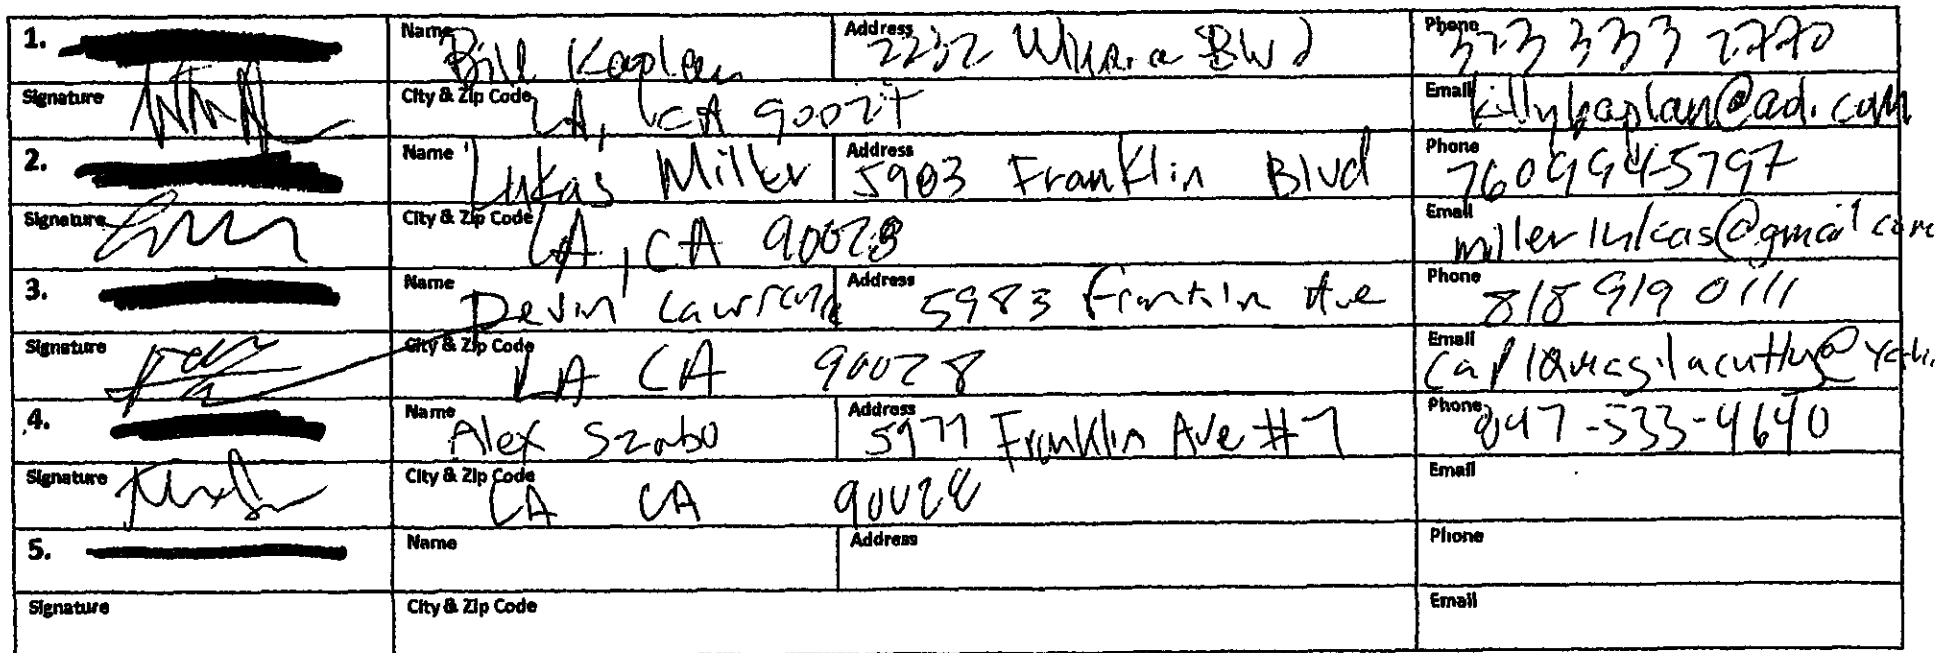 1. Name Bill Kaplan Address 2232 Blvd Phone 323 333 2770
Signature City & Zip Code LA, CA Email @aol.com
2. Name Lukas Miller Address 5903 Franklin Blvd Phone 760 994-5797
Signature City & Zip Code LA, CA 90028 Email millerlukas@gmail.com
3. Name Devin Lawrence Address 5983 Franklin Ave Phone 818 919 0111
Signature City & Zip Code LA CA 90028 Email
4. Name Alex Szabo Address 5977 Franklin Ave #7 Phone 847-533-4640
Signature City & Zip Code LA CA 90028 Email
5. Name Address Phone
Signature City & Zip Code Email